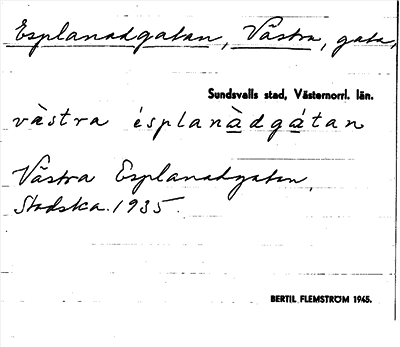 Esplanadgatan, Västra, gata,
Sundsvalls stad, Västernorrl. län.
västra ésplanàdgátan
Västra Esplanadgatan,
Stadska. 1935.
BERTIL FLEMSTRÖM 1965.